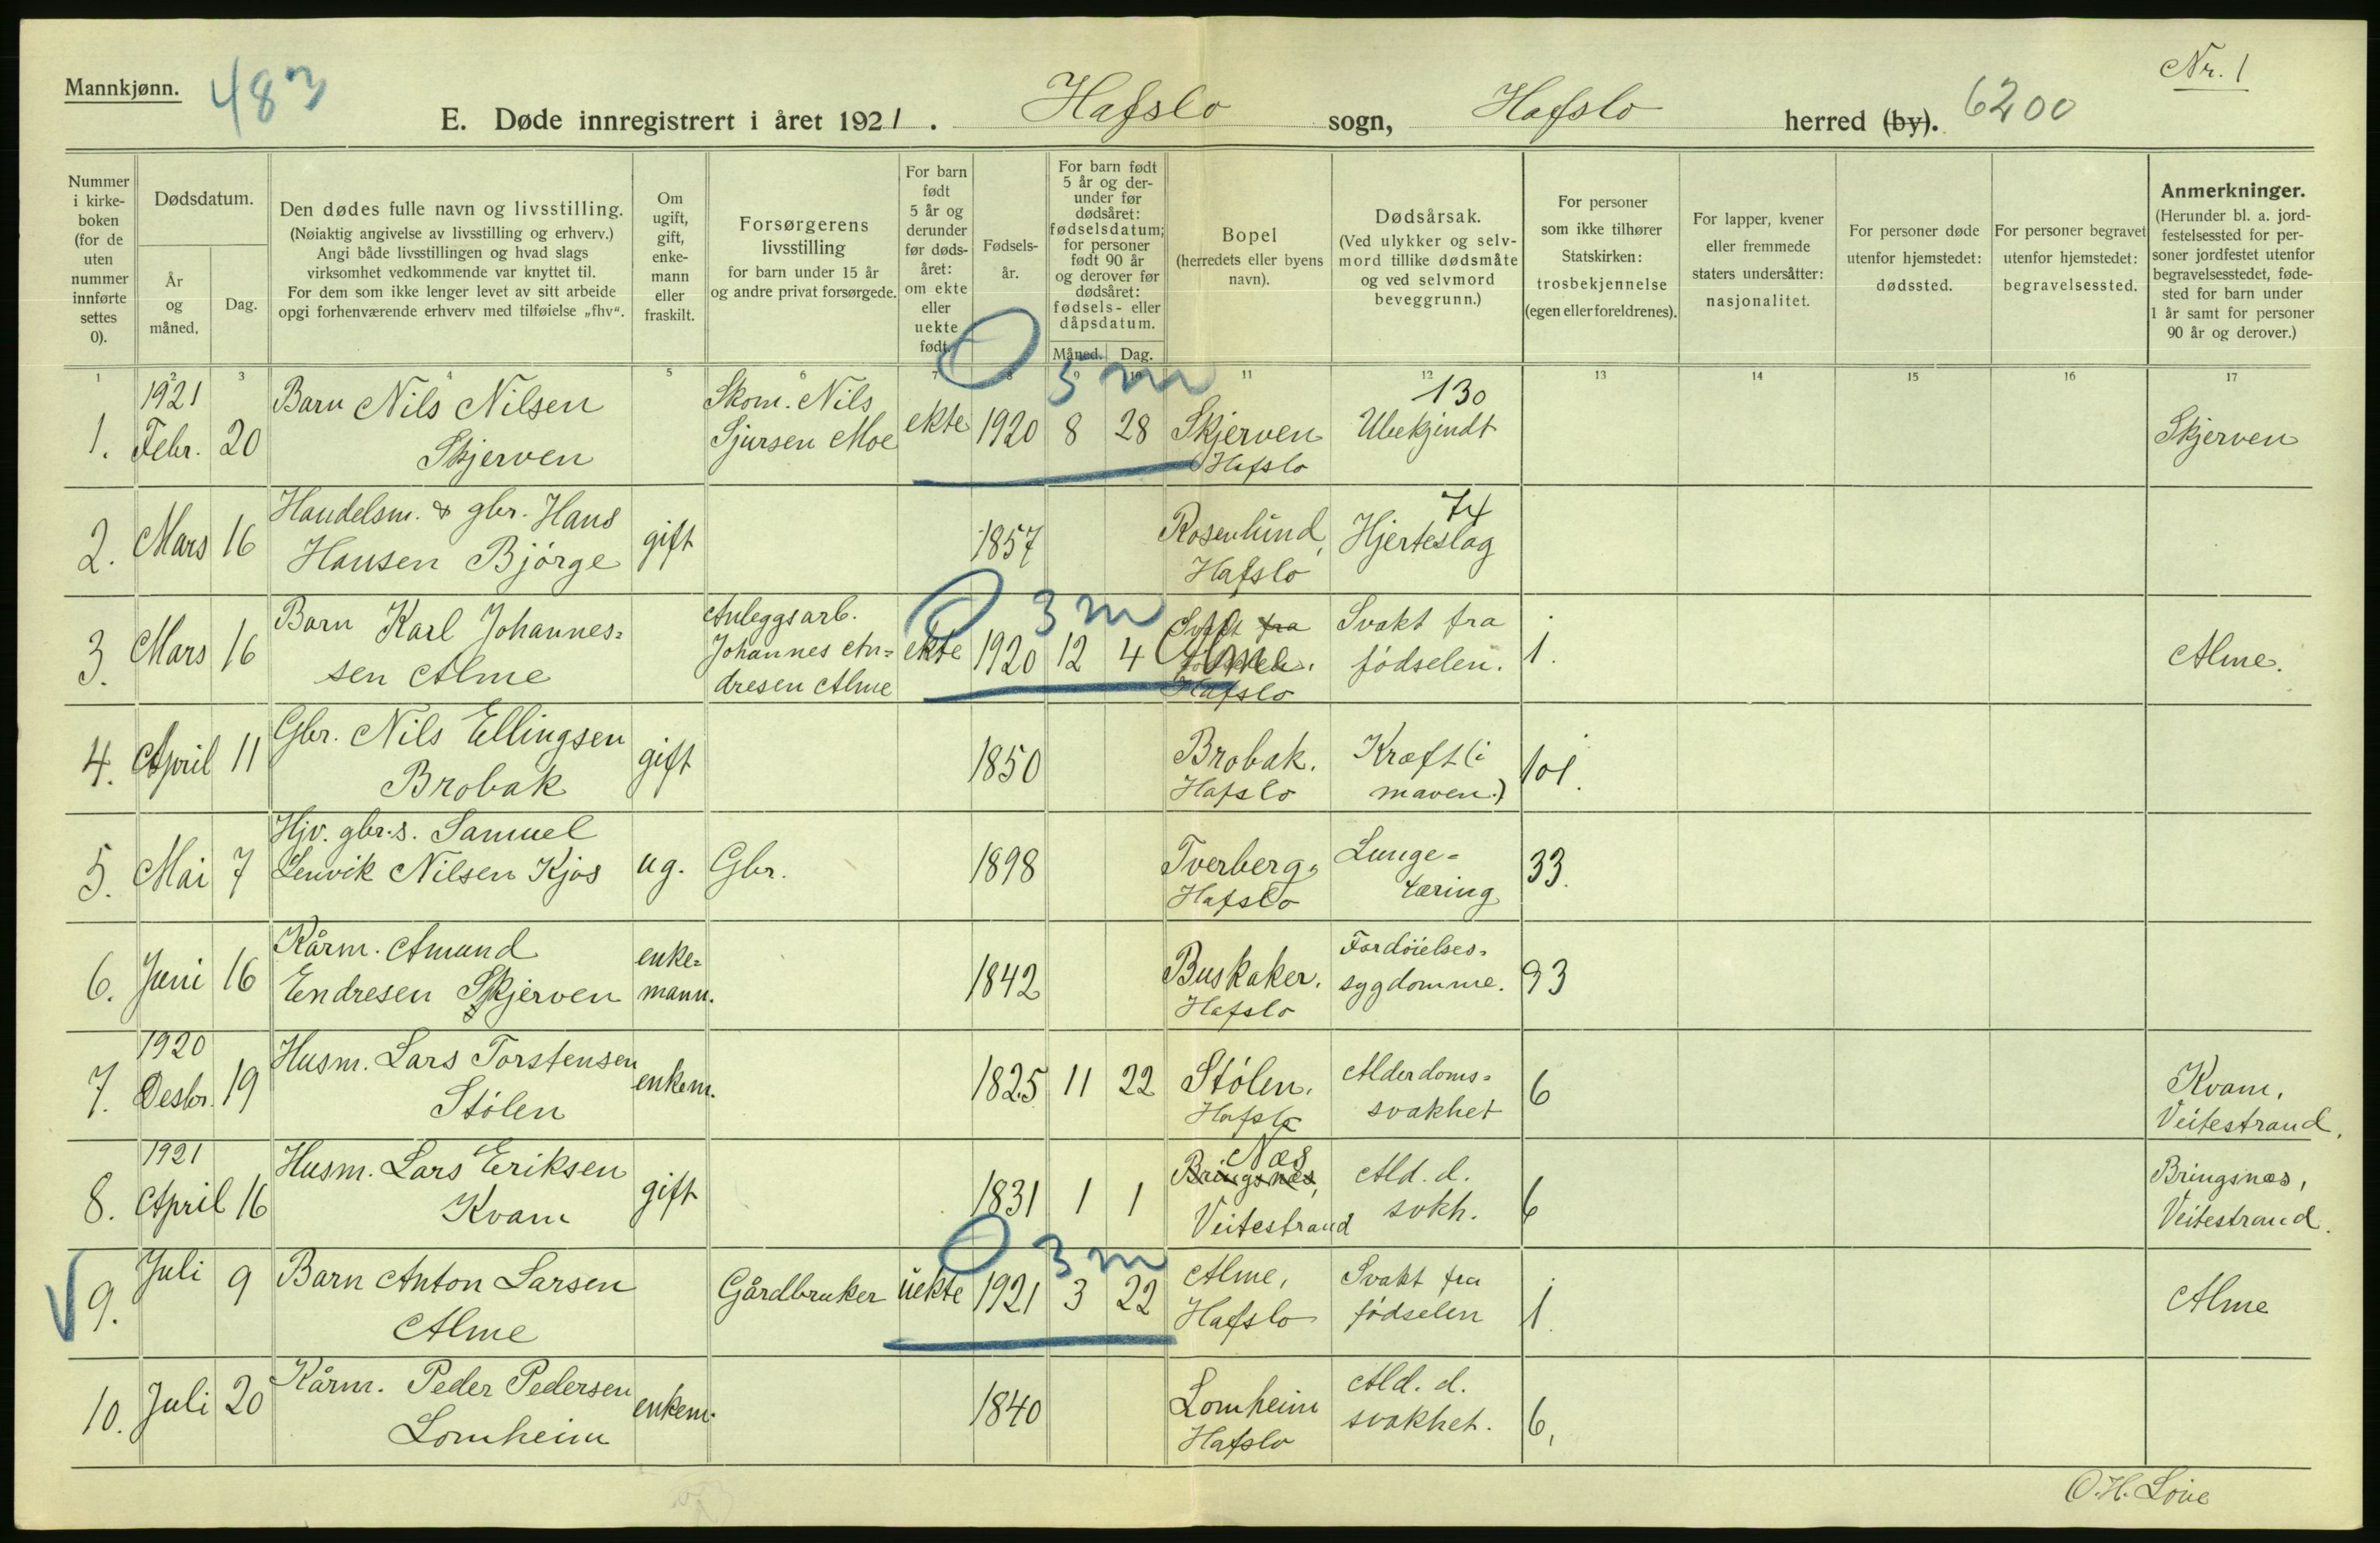 Mannkjønn.
483
Nr. 1
E. Døde innregistrert i året 1921. Hafslo sogn, Hafslo herred (by). 6200
Nummer i kirke-boken (for de uten nummer innførte settes 0).
Dødsdatum.
År og måned.
Dag.
Den dødes fulle navn og livsstilling.
(Nøiaktig angivelse av livsstilling og erhverv.)
Angi både livsstillingen og hvad slags
virksomhet vedkommende var knyttet til.
For dem som ikke lenger levet av sitt arbeide
opgi forhenværende erhverv med tilføielse „fhv“.
Om ugift, gift, enke-mann eller fraskilt.
Forsørgerens livsstilling
for barn under 15 år
og andre privat forsørgede.
For barn født 5 år og derunder før døds-året: om ekte eller uekte født.
Fødsels-år.
For barn født 5 år og der-under før dødsåret: fødselsdatum; for personer født 90 år og derover før dødsåret: fødsels- eller dåpsdatum.
Måned. Dag.
Bopel
(herredets eller byens navn).
Dødsårsak.
(Ved ulykker og selv-mord tillike dødsmåte og ved selvmord beveggrunn.)
For personer som ikke tilhører Statskirken: trosbekjennelse (egen eller foreldrenes).
For lapper, kvener eller fremmede staters undersåtter: nasjonalitet.
For personer døde utenfor hjemstedet: dødssted.
For personer begravet utenfor hjemstedet: begravelsessted.
Anmerkninger.
(Herunder bl. a. jord-festelsessted for per-soner jordfestet utenfor begravelsesstedet, føde-sted for barn under 1 år samt for personer 90 år og derover.)
1 2 3 4 5 6 7 8 9 10 11 12 13 14 15 16 17
1. 1921 Febr. 20 Barn Nils Nilsen Skjerven Skom. Nils Sjursen Moe ekte 1920 8 28 0 5 m Skjerven Hafslo Ubekjendt 130 Skjerven
2. Mars 16 Handelsm. & gbr. Hans Hansen Bjørge gift 1857 Rosenlund, Hafslo Hjerteslag 74
3. Mars 16 Barn Karl Johannes=sen Alme Anleggsarb. Johannes An=dresen Alme ekte 1920 12 4 0 3 m Alme Hafslo Svakt fra fødselen. 1. Alme.
4. April 11 Gbr. Nils Ellingsen Brobak gift 1850 Brobak. Hafslo Kræft (i maven.) 101.
5. Mai 7 Hjv. gbr.s. Samuel Lenvik Nilsen Kjos ug. Gbr. 1898 Tverberg, Hafslo Lunge=tæring 33.
6. Juni 16 Kårm. Amund Endresen Skjerven enke=mann. 1842 Buskaker. Hafslo Fordøielses=sygdomme. 93
7. 1920 Desbr. 19 Husm. Lars Torstensen Stölen enkem. 1825 11 22 Stölen. Hafslo Alderdoms=svakhet 6 Kvam, Veitestrand.
8. 1921 April 16 Husm. Lars Eriksen Kvam gift 1831 1 1 Bringsnes, Næs Veitestrand Ald. d. svkh. 6 Bringsnæs, Veitestrand.
9. Juli 9 Barn Anton Larsen Alme Gårdbruker uekte 1921 3 22 0 3 m Alme, Hafslo Svakt fra fødselen 1. Alme
10. Juli 20 Kårm. Peder Pedersen Lomheim enkem. 1840 Lomheim Hafslo Ald. d. svakhet. 6.